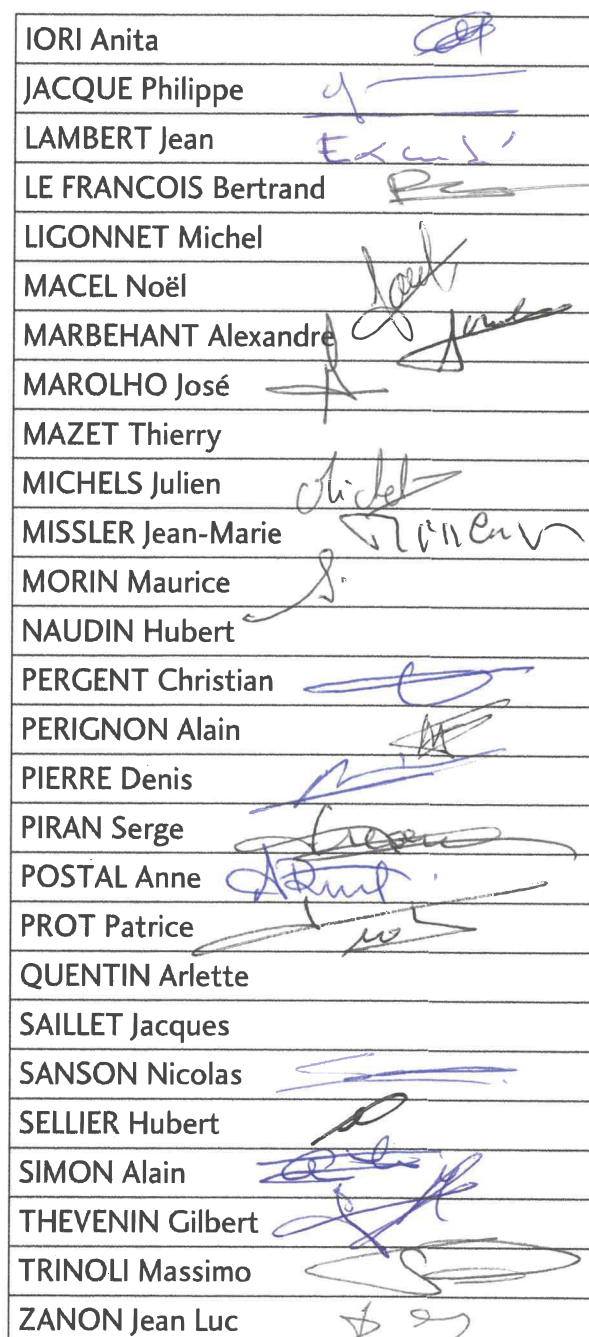 IORI Anita
JACQUE Philippe
LAMBERT Jean Excusé
LE FRANCOIS Bertrand
LIGONNET Michel
MACEL Noël
MARBEHANT Alexandre
MAROLHO José
MAZET Thierry
MICHELS Julien
MISSLER Jean-Marie
MORIN Maurice
NAUDIN Hubert
PERGENT Christian
PERIGNON Alain
PIERRE Denis
PIRAN Serge
POSTAL Anne
PROT Patrice
QUENTIN Arlette
SAILLET Jacques
SANSON Nicolas
SELLIER Hubert
SIMON Alain
THEVENIN Gilbert
TRINOLI Massimo
ZANON Jean Luc